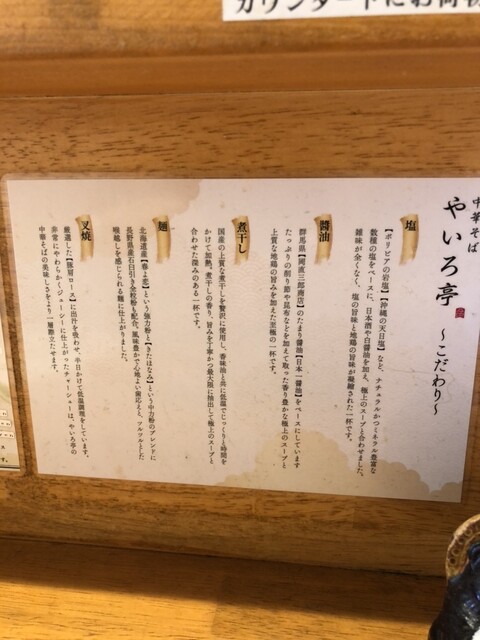 カウンター下にお荷物
中華そば
やいろ亭
〜こだわり〜
塩
【ボリビアの岩塩】【沖縄の天日塩】など、ナチュラルかつミネラル豊富な
数種の塩をベースに、日本酒や白醤油を加え、極上のスープと合わせました。
雑味が全くなく、塩の旨味と地鶏の旨味が凝縮された一杯です。
醤油
群馬県【岡直三郎商店】のたまり醤油【日本一醤油】をベースにしています
たっぷりの削り節や昆布などを加えて取った香り豊かな極上のスープと
上質な地鶏の旨みを加えた至極の一杯です。
煮干し
国産の上質な煮干しを贅沢に使用し、香味油と共に低温でじっくり時間を
かけて加熱。煮干しの香り、旨みを丁寧かつ最大限に抽出して極上のスープと
合わせた深みのある一杯です。
麺
北海道産【春よ恋】という強力粉と【きたほなみ】という中力粉のブレンドに
長野県産石臼引き全粒粉も配合。風味豊かで心地よい歯応え、ツルツルとした
喉越しを感じられる麺に仕上がりました。
叉焼
厳選した【豚肩ロース】に出汁を吸わせ、半日かけて低温調理をしています。
非常にやわらかくジューシーに仕上がったチャーシューは、やいろ亭の
中華そばの美味しさをより一層際立たせます。